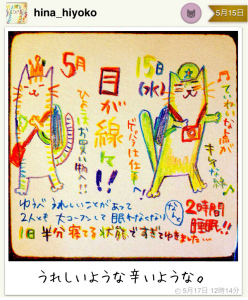 hina_hiyoko
5月15日
5月
15日
(水)
目が線て!!
ひよこはお買い物!!
ゲイクは仕事!
ていねいな点が
キラな絵
ゆうべ うれしいことがあって
2人とも 大コーフンして 眠れなくなり
なんと
2時間
睡眠!!
1日 半分 寝てる 状態で すぎてゆきました…
うれしいような辛いような。
5月17日 12時14分